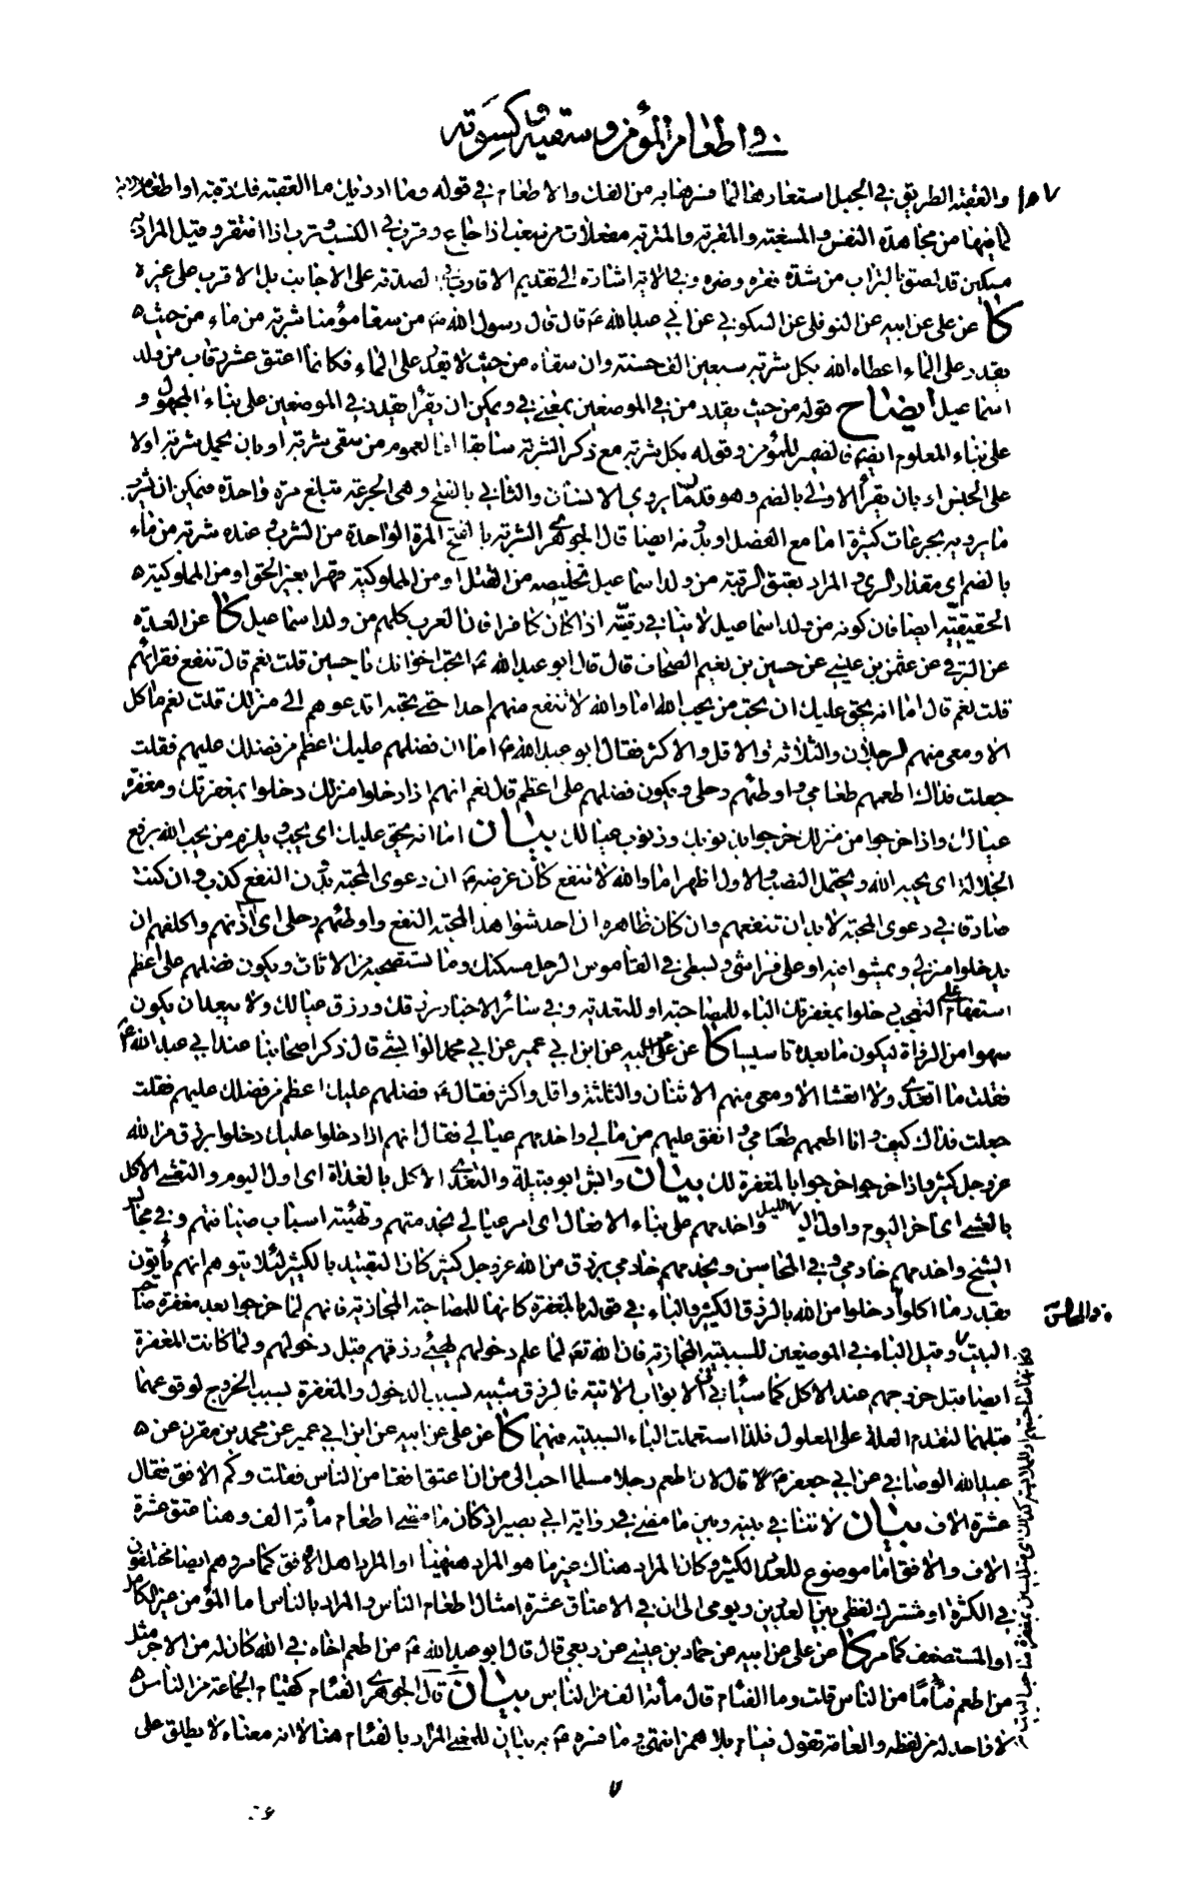 في اطعام المؤمن وسقيه وكسوته
١٥٧ والعقبة الطريق في الجبل استعارها لما فسرها به من الفك والاطعام في قوله وما ادريك ما العقبة فك رقبة او اطعام
لما فيها من مجاهدة النفس والمسغبة والمقربة والمتربة مفعلات من سغب اذا جاع وقرب في النسب وترب اذا افتقر وقيل المراد به
مسكين قد لصق بالتراب من شدة فقره وضره وفي الاية اشارة الى تقديم الاقارب في الصدقة على الاجانب بل الاقرب على غيره
كا عن علي عن ابيه عن النوفلي عن السكوني عن ابي عبد الله ع قال قال رسول الله ص من سقا مؤمنا شربة من ماء من حيث
يقدر على الماء اعطاه الله بكل شربة سبعين الف حسنة وان سقاه من حيث لا يقدر على الماء فكانما اعتق عشر رقاب من ولد
اسماعيل ايضاح قوله من حيث يقدر من في الموضعين بمعنى في ويمكن ان يقرأ يقدر في الموضعين على بناء المجهول و
على بناء المعلوم ايضا فالضمير للمؤمن وقوله بكل شربة مع ذكر الشربة سابقا اما لعموم من سقى شربة او بان يحمل شربة اولا
على الجنس او بان يقرأ الاولى بالضم وهو قدر ما يروي الانسان والثاني بالفتح وهي الجرعة تبلغ مرة واحدة فيمكن ان يشرب
ما يرويه بجرعات كثيرة اما مع الفصل او بدونه ايضا قال الجوهري الشربة بالفتح المرة الواحدة من الشرب وعنده شربة من ماء
بالضم اي مقدار الري و المراد بعتق الرقبة من ولد اسماعيل تخليصه من القتل او من المملوكية قهرا بغير الحق او من المملوكية
الحقيقية ايضا فان كونه من ولد اسماعيل لا ينافي رقيته اذا كان كافرا فان العرب كلهم من ولد اسماعيل كا عن العدة
عن البرقي عن عثمن بن عيسى عن حسين بن نعيم الصحاف قال قال ابو عبد الله ع اتحب اخوانك يا حسين قلت نعم قال تنفع فقرائهم
قلت نعم قال اما انه يحق عليك ان تحب من يحب الله اما والله لا تنفع منهم احدا حتى تحبه اتدعوهم الى منزلك قلت نعم ما اكل
الا ومعي منهم الرجلان والثلاثة والاقل والاكثر فقال ابو عبد الله ع اما ان فضلهم عليك اعظم من فضلك عليهم فقلت
جعلت فداك اطعمهم طعامي و اوطئهم رحلي و يكون فضلهم علي اعظم قال نعم انهم اذا دخلوا منزلك دخلوا بمغفرتك ومغفرة
عيالك واذا خرجوا من منزلك خرجوا بذنوبك وذنوب عيالك بيان اما انه يحق عليك اي يجب ويلزم من يحب الله برفع
الجلالة اي يحبه الله ويحتمل النصب والاول اظهر اما والله لا تنفع كأن غرضه ع ان دعوى المحبة بدون النفع كذب وان كنت
صادقا في دعوى المحبة لا بد ان تنفعهم وان كان ظاهره ان احد شؤ هذه المحبة النفع واوطئهم رحلي اي آذنهم واكلفهم ان
يدخلوا منزلي ويمشوا فيه او على فراشي وبسطي في القاموس الرحل مسكنك وما تستصحبه من الاثاث ويكون فضلهم علي اعظم
استفهام على التعجب دخلوا بمغفرتك الباء للمصاحبة او للتعدية وفي سائر الاخبار برزقك ورزق عيالك ولا يبعد ان يكون
سهوا من الرواة ليكون ما بعده تاسيسا كا عن علي عن ابيه عن ابن ابي عمير عن ابي محمد الوابشي قال ذكر اصحابنا عند ابي عبد الله ع
فقلت ما اتغدى ولا اتعشا الا ومعي منهم الاثنان والثلاثة واقل واكثر فقال ع فضلهم عليك اعظم من فضلك عليهم فقلت
جعلت فداك كيف وانا اطعمهم طعامي و انفق عليهم من مالي واخدمهم عيالي فقال انهم اذا دخلوا عليك دخلوا برزق من الله
عز وجل كثير واذا خرجوا خرجوا بالمغفرة لك بيان وابش ابو قبيلة والتغدي الاكل بالغداة اي اول اليوم والتعشي الاكل
بالعشي اي آخر اليوم واول الليل واخدمهم على بناء الافعال اي امر عيالي بخدمتهم وتهيئة اسباب ضيافتهم وفي مجالس
الشيخ واخدمهم خادمي و في المحاسن ويخدمهم خادمي برزق من الله عز وجل كثير كان التقييد بالكثير لئلا يتوهم انهم يأتون
بقدر ما اكلوا دخلوا من الله بالرزق الكثير والباء في قوله بالمغفرة كانها للمصاحبة المجازية فانهم لما خرجوا بعد مغفرة صاحب
البيت وقيل الباء في الموضعين للسببية المجازية فان الله تعالى لما علم دخولهم يهيئ رزقهم قبل دخولهم ولما كانت المغفرة
ايضا قبل خروجهم عند الاكل كما سيأتي في الابواب الاتية فالرزق شبيه بسبب الدخول والمغفرة بسبب الخروج لوقوعهما
قبلهما لتقدم العلة على المعلول فلذا استعملت الباء السببية فيهما كا عن علي عن ابيه عن ابن ابي عمير عن محمد بن مقرن عن
عبيد الله الوصافي عن ابي جعفر ع قال لان اطعم رجلا مسلما احب الى من ان اعتق افقا من الناس فقلت وكم الافق فقال
عشرة الاف بيان لا تنافي بينه وبين ما مضى في رواية ابي بصير اذ كان ما مضى اطعام مأة الف وهنا عتق عشرة
الاف والافق اما موضوع للعدد الكثير وكان المراد هناك غير ما هو المراد هيهنا او المراد اهل الافق كما مر وهم ايضا مختلفون
في الكثرة او مشترك لفظي بين العددين ويومي الى ان في الاعتاق عشرة امثال اطعام الناس والمراد بالناس اما المؤمن غير الكامل
او المستضعف كما مر كا عن علي عن ابيه عن حماد بن عيسى عن ربعي قال قال ابو عبد الله ع من اطعم اخاه في الله كان له من الاجر مثل
من اطعم فئاما من الناس قلت وما الفئام قال مأة الف من الناس بيان قال الجوهري الفئام كقيام الجماعة من الناس
لا واحد له من لفظه والعامة تقول فيام بلا همز انتهى و ما فسره ع به بيان للمعنى المراد بالفئام هنا لا انه معناه لا يطلق على